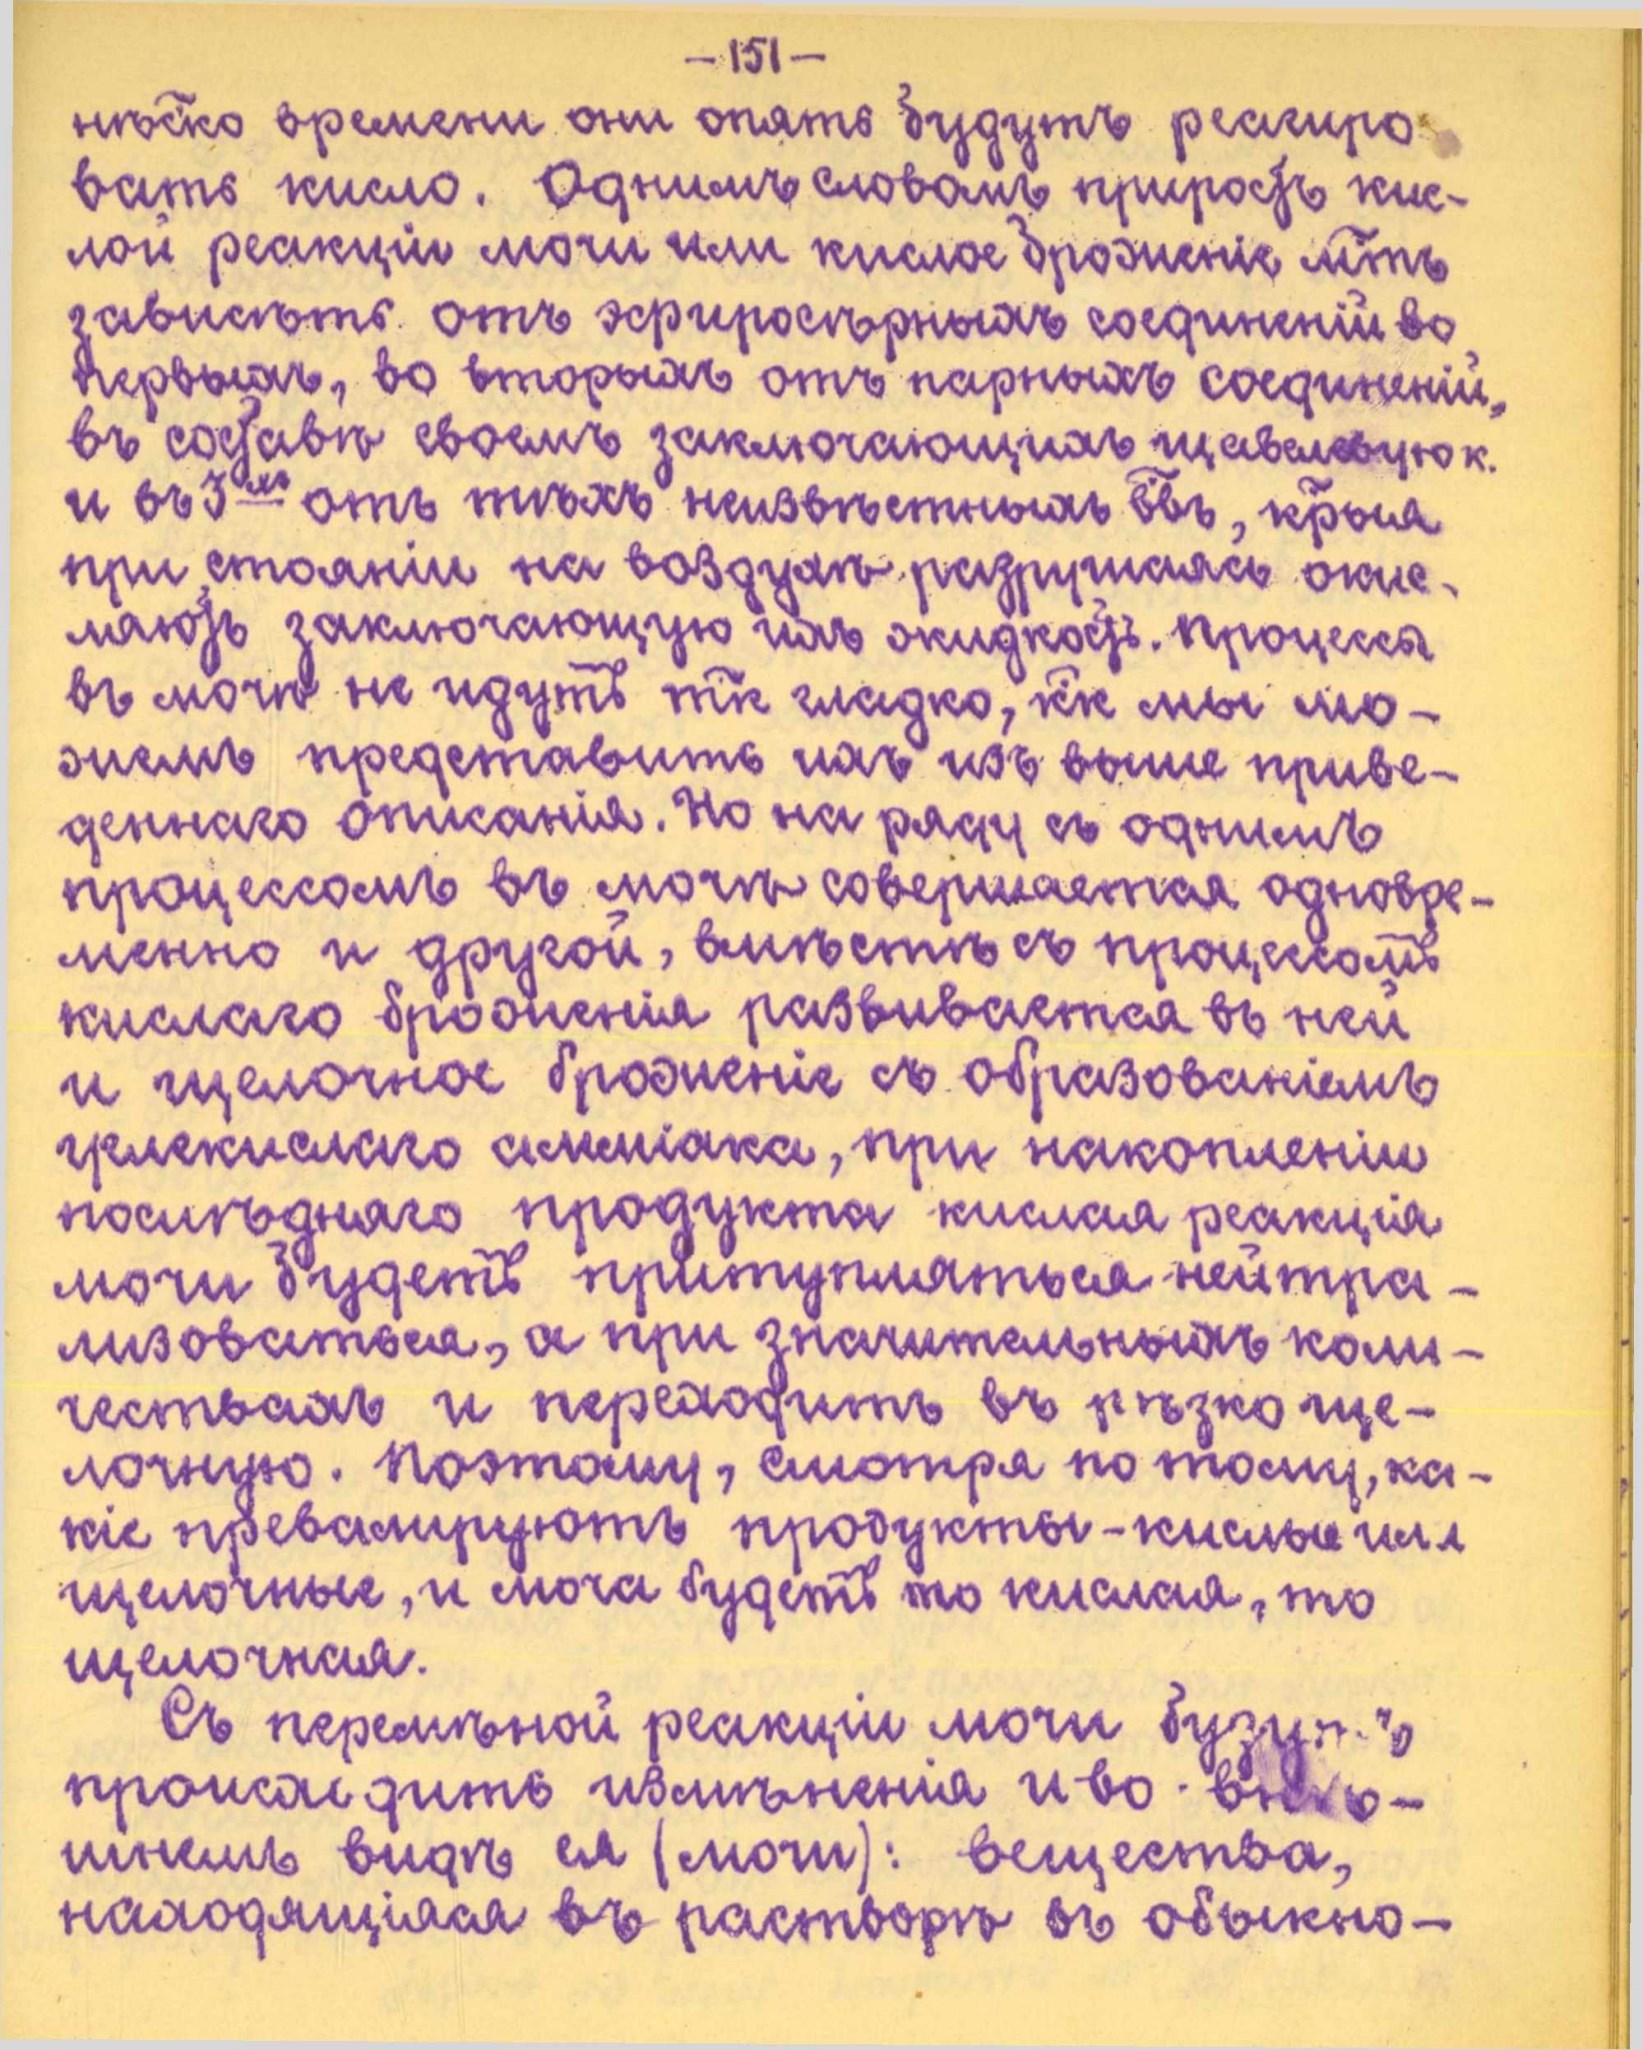 -151-
нѣско времени они опять будутъ реагиро
вать кисло. Однимъ словомъ приростъ кис-
лой реакціи мочи или кислое броженіе мтъ
зависѣть отъ эфиросѣрныхъ соединеній во
первыхъ, во вторыхъ отъ парныхъ соединеній,
въ составѣ своемъ заключающихъ щавелевую к.
и въ 3хъ отъ тѣхъ неизвѣстныхъ ввъ, крыя
при стояніи на воздухѣ разрушаясь окис-
ляютъ заключающую ихъ жидкость. Процессы
въ мочѣ не идутъ тк гладко, кк мы мо-
жемъ представить ихъ изъ выше приве-
деннаго описанія. Но на ряду съ однимъ
процессомъ въ мочѣ совершается одновре-
менно и другой, вмѣстѣ съ процессомъ
кислаго броженія развивается въ ней
и щелочное броженіе съ образованіемъ
углекислаго амміака, при накопленіи
послѣдняго продукта кислая реакція
мочи будетъ притупляться нейтра-
лизоваться, а при значительныхъ коли-
чествахъ и переходитъ въ рѣзко ще-
лочную. Поэтому, смотря по тому, ка-
кіе превалируютъ продукты-кислые или
щелочные, и моча будетъ то кислая, то
щелочная.
Съ перемѣной реакціи мочи будутъ
происходить измѣненія и во внѣ-
шнемъ видѣ ея (мочи): вещества,
находящіяся въ растворѣ въ обыкно-